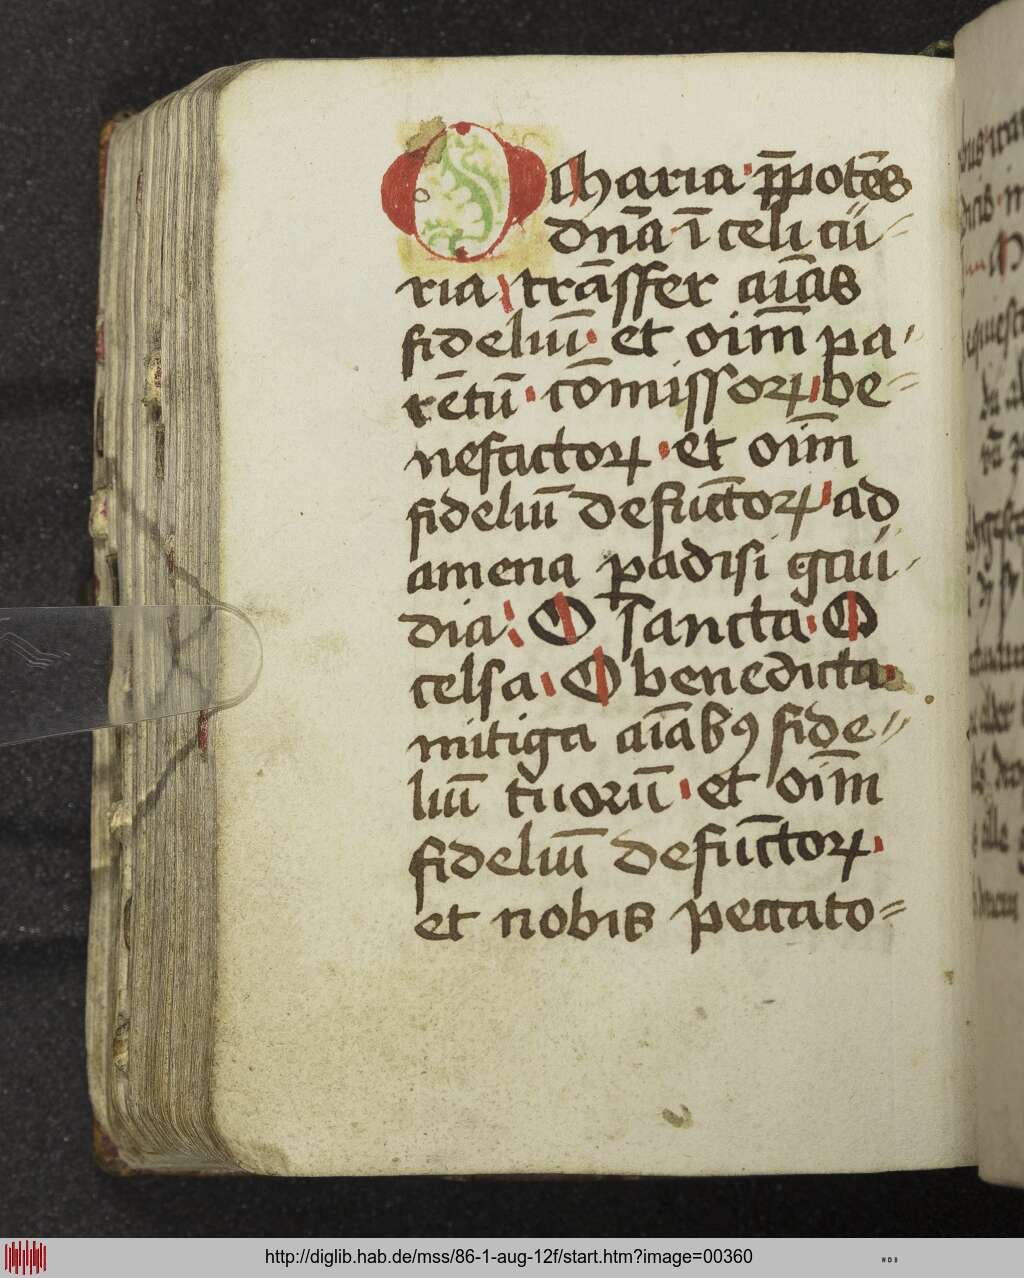 O Maria p̄potēs
dn̄a ī celi cu-
ria trāsfer aīas
fideliū et oīm pa-
rētū cōmissoꝝ be-
nefactoꝝ et oīm
fideliū defūctoꝝ ad
amena ꝑadisi gau-
dia O sancta O
celsa O benedicta
mitiga aīabꝰ fide-
liū tuorū et oīm
fideliū defūctoꝝ
et nobis peccato-
http://diglib.hab.de/mss/86-1-aug-12f/start.htm?image=00360